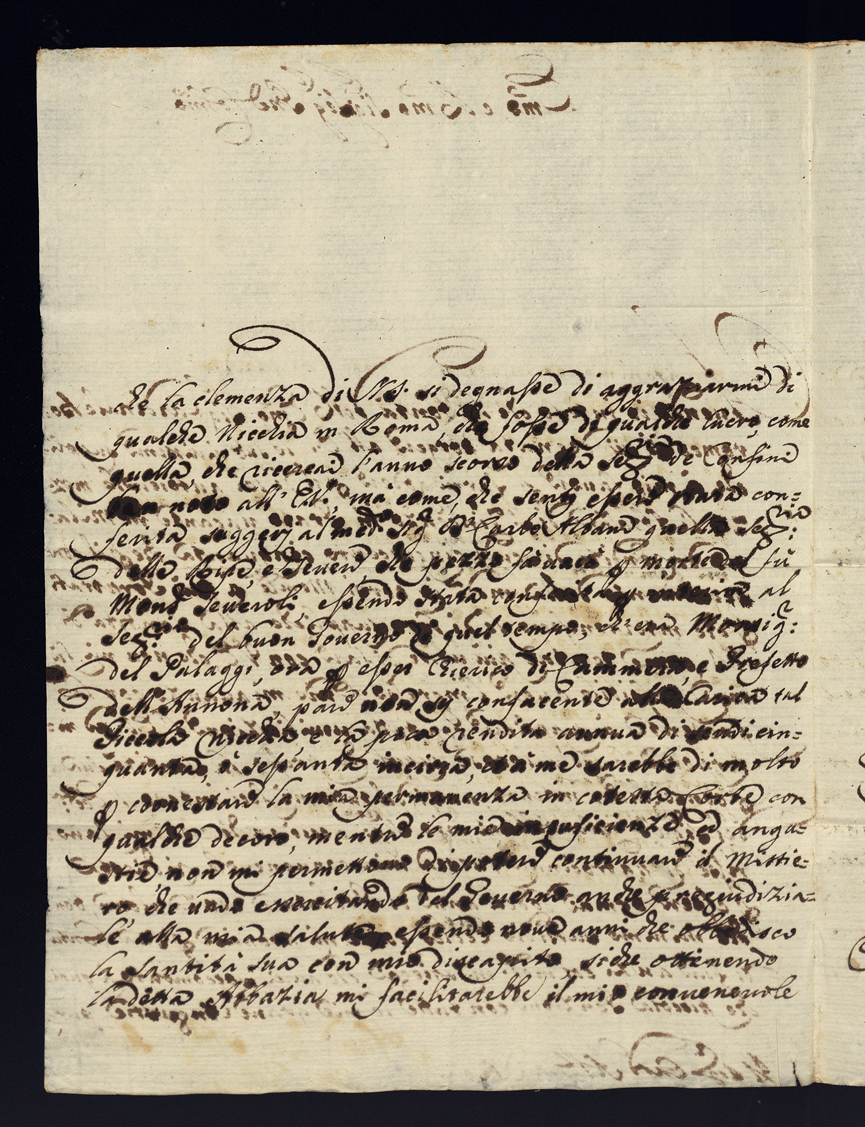 che la clemenza di N.S. si degnasse di aggraziarmi di
qualche Nicchia in Roma, che fosse di qualche lucro, come
quella, che ricercai l'anno scorso della Seg.ria de Confini
ben noto all'E.V., mà come, che sentij essere stata con=
ferita suggerij al med.º Sig.r Card.e Albani quella Seg.ria:
delle Ripe, e Teveri che p morte del fù
Mons.r Severoli, essendo stata conferita al
Seg.rio del buon Governo di quel tempo, ch'era Monsig.r:
del Palaggi, ora p esser Chierico di Cammera, e Prefetto
dell'Annona, pare non sij confacente alla Carica tal
Piccola Nicchia e la poca rendita annua di scudi cin=
quanta, ò sessanta incirca, ed à me sarebbe di molto
p coonestare la mia permanenza in cotesta Corte con
qualche decoro, mentre le mie insuficienze, ed angu=
stie non mi permettono di potere continuare il Mistie=
ro che vado esercitando del Governo anche pregiudizia=
le alla mia salute, essendo nove anni che obbedisco
la Santità Sua con mio discapito, siche ottenendo
la detta Abbazia mi facilitarebbe il mio convenevole